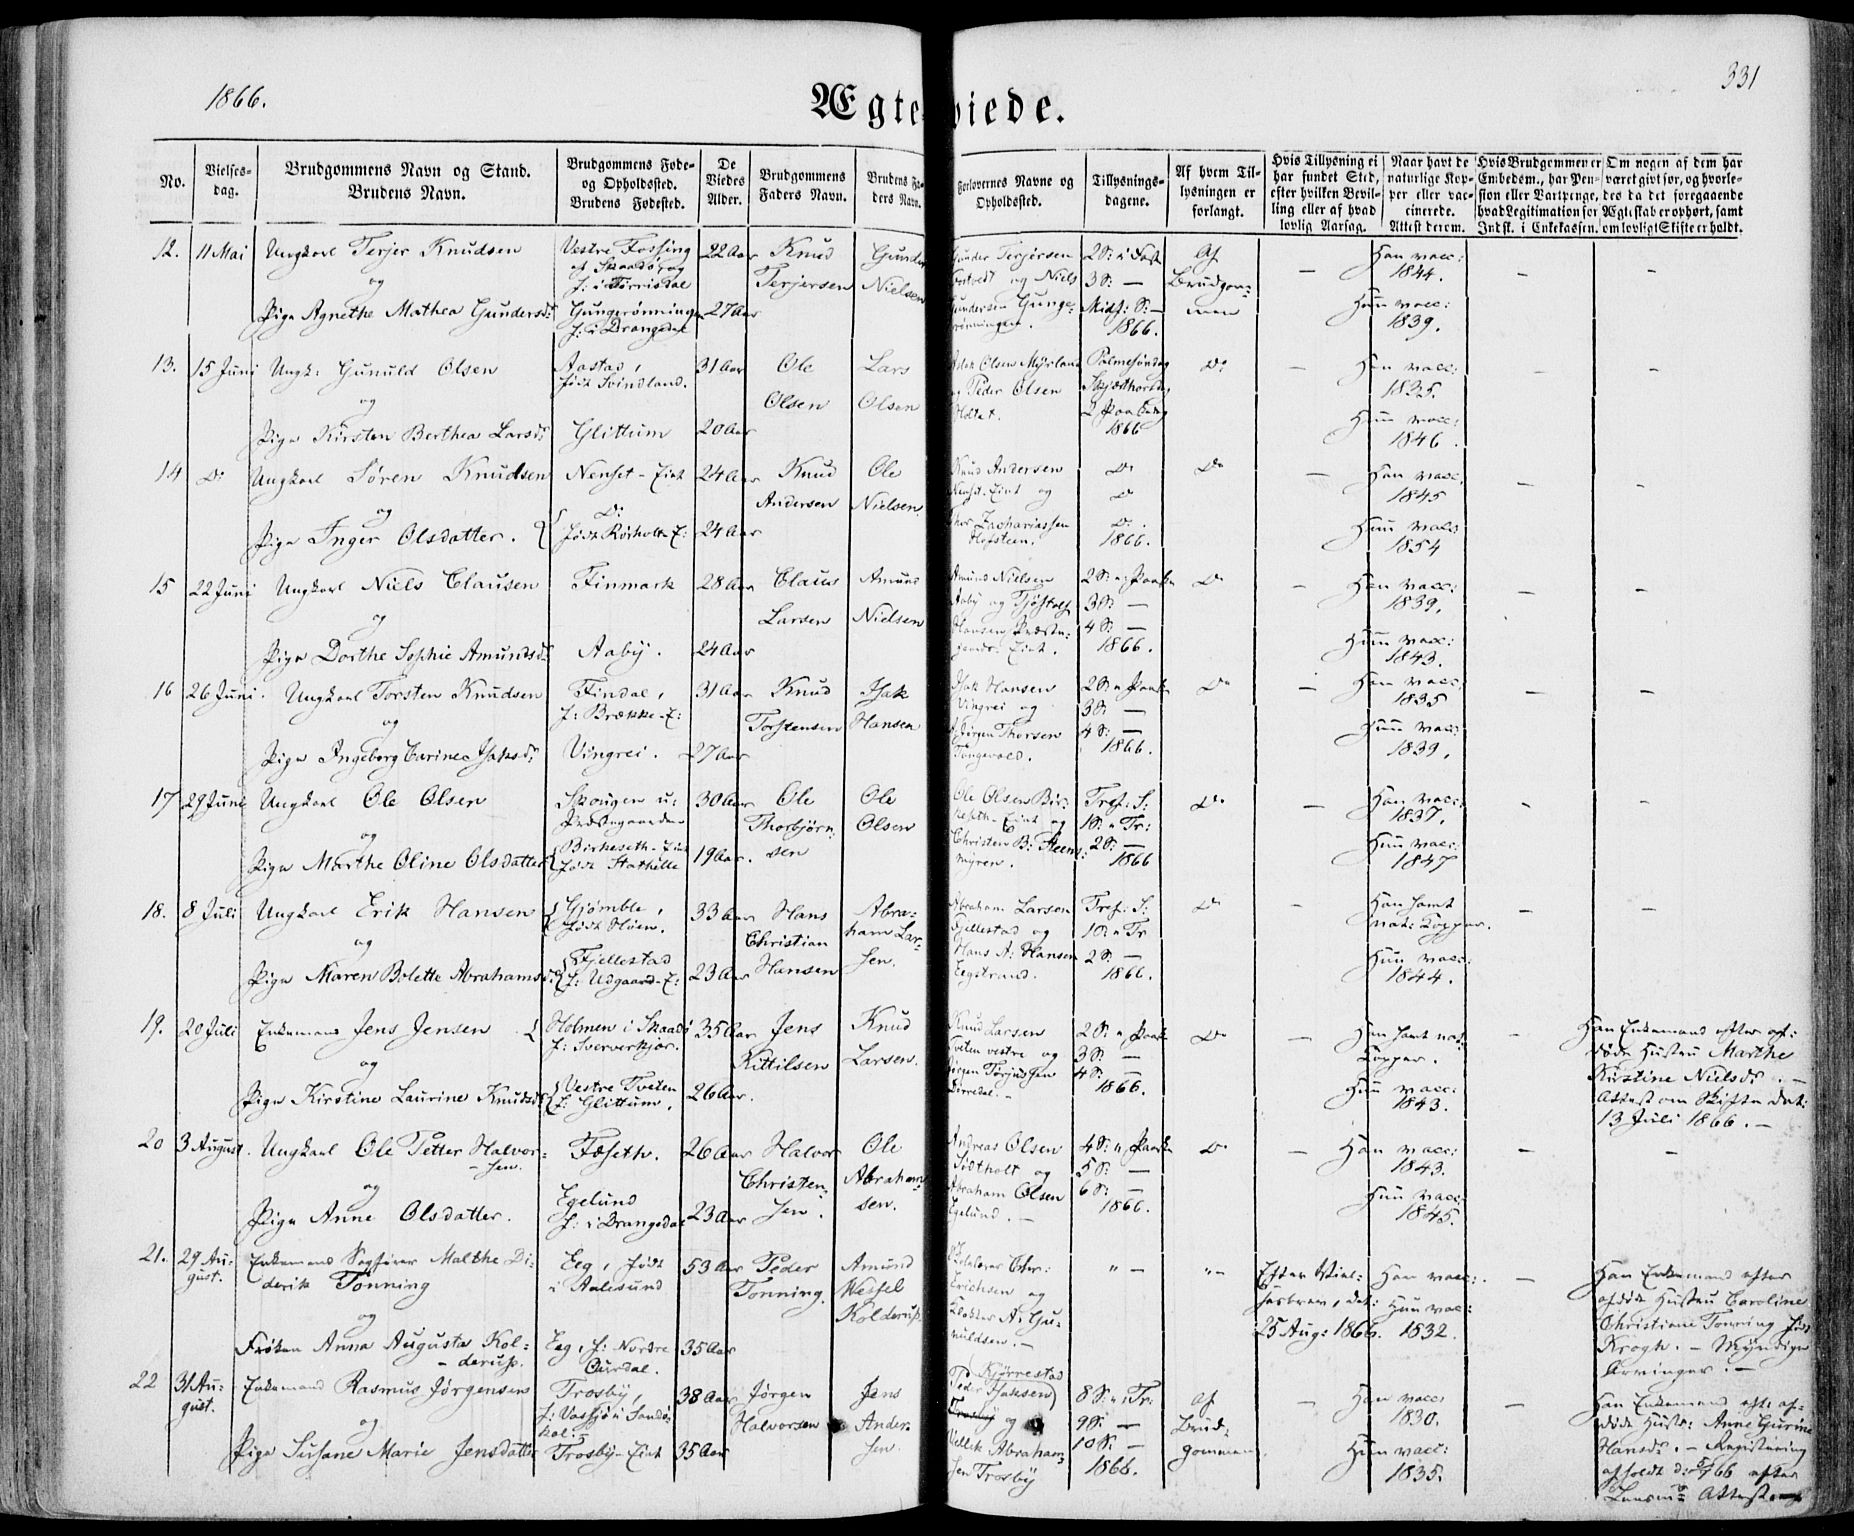 1866.
331
Ægteviede.
No.
Vielses-
dag.
Brudgommens Navn og Stand.
Brudens Navn.
Brudgommens Føde-
og Opholdssted.
Brudens Fødested.
De
Viedes
Alder.
Brudgommens
Faders Navn.
Brudens Fa-
ders Navn.
Forlovernes Navne og
Opholdssted.
Tillysnings-
dagene.
Af hvem Til-
lysningen er
forlangt.
Hvis Tillysning ei
har fundet Sted,
efter hvilken Bevil-
ling eller af hvad
lovlig Aarsag.
Naar havt de
naturlige Kop-
per eller vac-
cinerede.
Attest derom.
Hvis Brudgommen er
Embedsm., har Pen-
sion eller Vartpenge,
hvad Legitimation for
Indsk. i Enkekassen.
Om nogen af dem har
været gift før, og hvorle-
des da det foregaaende
Ægteskab er ophørt, samt
om lovligt Skifte er holdt.
12. 11 Mai Ungkarl Terjer Knudsen
og
Pige Agnethe Mathea Gundersd:
Vestre Fossing
af Skaadø, og
f: i Tørrisdal
Gungerønningen
f: i Drangedal
22 Aar
27 Aar
Knud
Terjersen
Gunder
Nielsen
Gunder Terjersen
og Niels
Gundersen Gunge-
rønningen.
2 S: i Fast
3 S: —
Midf: S: —
1866.
Af
Brudgom-
men
—
Han vacc:
1844.
Hun vacc:
1839.
— —
13. 15 Juni Ungk: Gunuld Olsen
og
Pige Kirsten Berthea Larsd:
Aastad,
født Svindland.
Glittum
31 Aar
20 Aar
Ole
Olsen
Lars
Olsen
Olsen Myrland
og Peder Olsen
Holtet.
Palmesøndag
Skjærthorsdag
2 Paaskedag
1866
Do
—
Han vacc:
1835.
Hun vacc:
1846.
— —
14 Do Ungkarl Søren Knudsen
og
Pige Inger Olsdatter.
Nenset-Eiet
Do
født Rørholt-E:
24 Aar
24 Aar
Knud
Andersen
Ole
Nielsen
Knud Andersen
Nenset-Eiet og
Thor Zachariassen
Hofsteen.
Do
Do
Do
1866.
Do
—
Han vacc.
1845
Hun vacc
1854
— —
15 22 Juni Ungkarl Niels Clausen
og
Pige Dorthe Sophie Amundsd:
Finmark
Aaby.
28 Aar
24 Aar
Claus
Larsen
Amund
Nielsen
Amund Nielsen
Aaby og Tjøstolf
Hansen Præste-
gaards Eiet.
2 S: e: Paaske
3 S: —
4 S: —
1866.
Do
—
Han vacc:
1839.
Hun vacc:
1843.
— —
16 26 Juni. Ungkarl Torsten Knudsen
og
Pige Ingeborg Carine Isaksd:
Findal,
f: Brække-E:
Vingrei.
31 Aar
27 Aar
Knud
Torstensen
Isak
Hansen
Isak Hansen
Vingrei og
Jørgen Thorsen
Tangevald.
2 S: e: Paaske
3 S: —
4 S: —
1866.
Do
—
Han vacc.
1835
Hun vacc:
1839.
— —
17 29 Juni Ungkarl Ole Olsen
og
Pige Marthe Oline Olsdatter
Skougen u:
Præstegaarden
Birkeseth-Eiet
født Stathelle
30 Aar
19 Aar.
Ole
Thorbjørn-
sen
Ole
Olsen
Ole Olsen Bir-
keseth-Eiet og
Christen B: Steens-
myren.
Tref: S:
1 S: e: Tr:
2 S: —
1866
Do
—
Han vacc:
1837.
Hun vacc:
1847
— —
18. 8 Juli Ungkarl Erik Hansen
og
Pige Maren Bolette Abrahamsd:
Gjømble,
født Høien.
Fjellestad
f: Udgaard-E:
33 Aar
23 Aar
Hans
Christian
Hansen
Abra-
ham Lar-
sen.
Abraham Larsen
Fjellestad og
Hans A: Hansen
Eegstrand.
Tref: S:
1 S: e: Tr
2 S: —
1866.
Do
—
Han havt
nat: Kopper.
Hun vacc:
1844.
— —
19. 20 Juli Enkemand Jens Jensen
og
Pige Kirstine Laurine Knudsd:
Holmen i Skaadø
f: Sververkjær.
Vestre Tveten
f: Glittum.
35 Aar
26 Aar.
Jens
Kittilsen
Knud
Larsen.
Knud Larsen
Tveten vestre og
Jørgen Tørjussen
2 S: e: Paaske
3 S: —
4 S: —
1866.
Do
—
Han havt nat
Kopper.
Hun vacc:
1843.
—
Han Enkemand efter af-
døde Hustru Marthe
Kirstine Nielsd: —
Attest om Skifte dat:
13 Juli 1866. —
20 3 August. Ungkarl Ole Petter Halvor-
sen.
og
Pige Anne Olsdatter.
Fæseth.
Egelund
f: i Drangedal
26 Aar
23 Aar
Halvor
Christen-
sen.
Ole
Abraham-
sen.
Andreas Olsen
Sødtholt og
Abraham Olsen
Egelund. —
4 S: e: Paaske
5 S: —
6 S: —
1866.
Do
—
Han vacc:
1843.
Hun vacc:
1845.
— —
21. 29 Au-
gust.
Enkemand Sagfører Malthe Di-
derik Tønning
og
Frøken Anna Augusta Kol-
derup.
Eeg, født
i Aalesund
Eeg, f: Nordre
Aurdal.
53 Aar
35 Aar
Peder
Tønning.
Amund
Wessel
Kolderup.
Erichsen og
Klokker A: Gu-
nuldsen. —
" —
" —
Efter Viel-
sesbrev, dat:
25 Aug: 1866.
Han vacc:
Hun vac:
1832.
—
Han Enkemand efter
afdøde Hustru Caroline
Christiane Tønning født
Krogh. — Myndige
Arvinger. —
22 31 Au-
gust.
Enkemand Rasmus Jørgensen
og
Pige Susane Marie Jensdatter
Trosby,
f: Vassjø i Sandø-
kal:
Trosby-Eiet
38 Aar
35 Aar
Jørgen
Halvorsen
Jens
Ander-
sen.
Kjørrestad
Peder Isaksen
Trosby og
Kjellek Abraham-
sen Trosby
8 S: e: Tr:
9 S: —
10 S: —
1866.
af
Brud-
gommen.
Han vacc
1830.
Hun vacc:
1835.
—
Han Enkemand eft: af-
døde Hustr: Anne Gurine
Hansd: — Registrering
afholdt d: 5/7 66 efter
Lensm: Attest. —